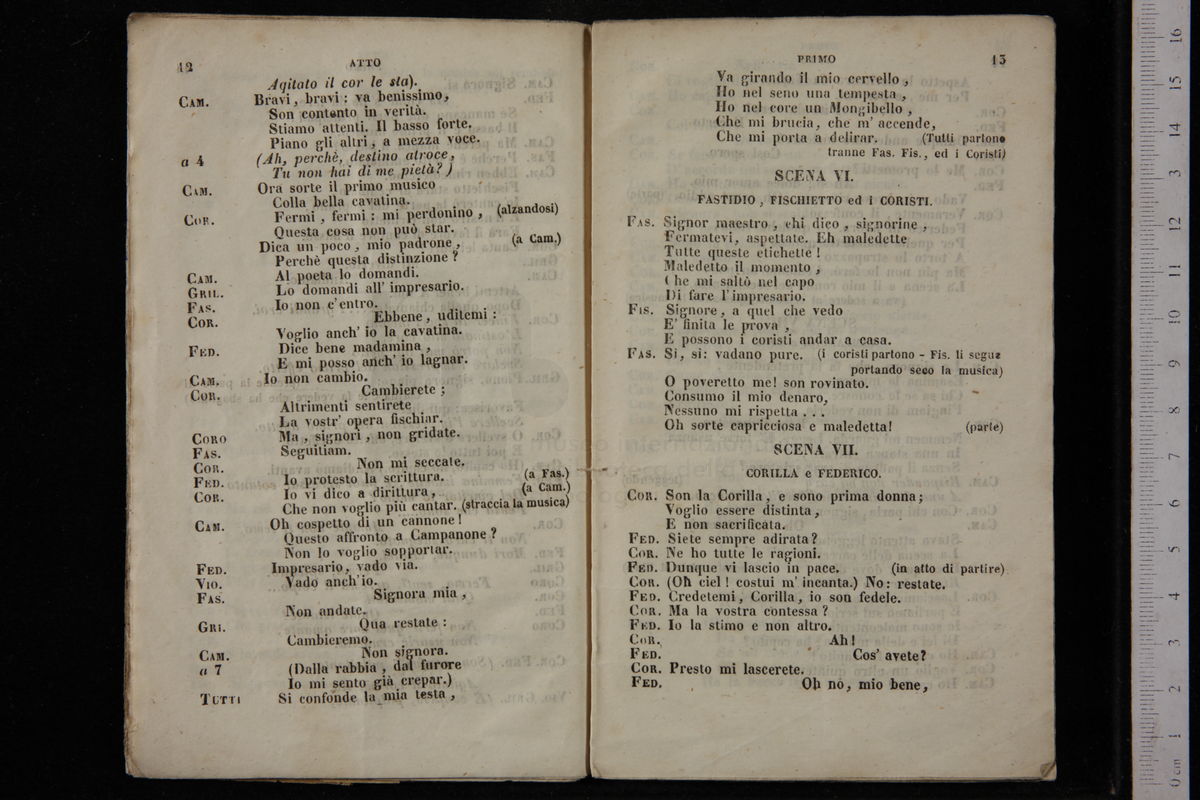 12 ATTO
Agitato il cor le sta).
CAM. Bravi, bravi : va benissimo,
Son contento in verità.
Stiamo attenti. Il basso forte.
Piano gli altri, a mezza voce.
a 4 (Ah, perchè, destino atroce,
Tu non hai di me pietà?)
CAM. Ora sorte il primo musico
Colla bella cavatina.
COR. Fermi, fermi : mi perdonino, (alzandosi)
Questa cosa non può star.
Dica un poco, mio padrone, (a Cam.)
Perchè questa distinzione?
CAM. Al poeta lo domandi.
GRIL. Lo domandi all' impresario.
FAS. Io non c'entro.
COR. Ebbene, uditemi :
Voglio anch' io la cavatina.
FED. Dice bene madamina,
E mi posso anch' io lagnar.
CAM. Io non cambio.
COR. Cambierete ;
Altrimenti sentirete
La vostr' opera fischiar.
CORO Ma, signori, non gridate.
FAS. Seguitiam.
COR. Non mi seccate.
FED. Io protesto la scrittura. (a Fas.)
COR. Io vi dico a dirittura, (a Cam.)
Che non voglio più cantar. (straccia la musica)
CAM. Oh cospetto di un cannone!
Questo affronto a Campanone?
Non lo voglio sopportar.
FED. Impresario, vado via.
VIO. Vado anch'io.
FAS. Signora mia,
Non andate.
GRI. Qua restate :
Cambieremo.
CAM. Non signora.
a 7 (Dalla rabbia, dal furore
Io mi sento già crepar.)
TUTTI Si confonde la mia testa,
PRIMO 13
Va girando il mio cervello,
Ho nel seno una tempesta,
Ho nel core un Mongibello,
Che mi brucia, che m' accende,
Che mi porta a delirar. (Tutti partono
tranne Fas. Fis., ed i Coristi)
SCENA VI.
FASTIDIO, FISCHIETTO ed i CORISTI.
FAS. Signor maestro, chi dico, signorine,
Fermatevi, aspettate. Eh maledette
Tutte queste etichette!
Maledetto il momento,
Che mi saltò nel capo
Di fare l'impresario.
FIS. Signore, a quel che vedo
E' finita le prova,
E possono i coristi andar a casa.
FAS. Si, si: vadano pure. (i coristi partono - Fis. li segue
portando seco la musica)
O poveretto me! son rovinato.
Consumo il mio denaro,
Nessuno mi rispetta . . .
Oh sorte capricciosa e maledetta! (parte)
SCENA VII.
CORILLA e FEDERICO.
COR. Son la Corilla, e sono prima donna;
Voglio essere distinta,
E non sacrificata.
FED. Siete sempre adirata?
COR. Ne ho tutte le ragioni.
FED. Dunque vi lascio in pace. (in atto di partire).
COR. (Oh ciel! costui m' incanta.) No: restate.
FED. Credetemi, Corilla, io son fedele.
COR. Ma la vostra contessa?
FED. Io la stimo e non altro.
COR. Ah!
FED. Cos' avete?
COR. Presto mi lascerete.
FED. Oh nò, mio bene,